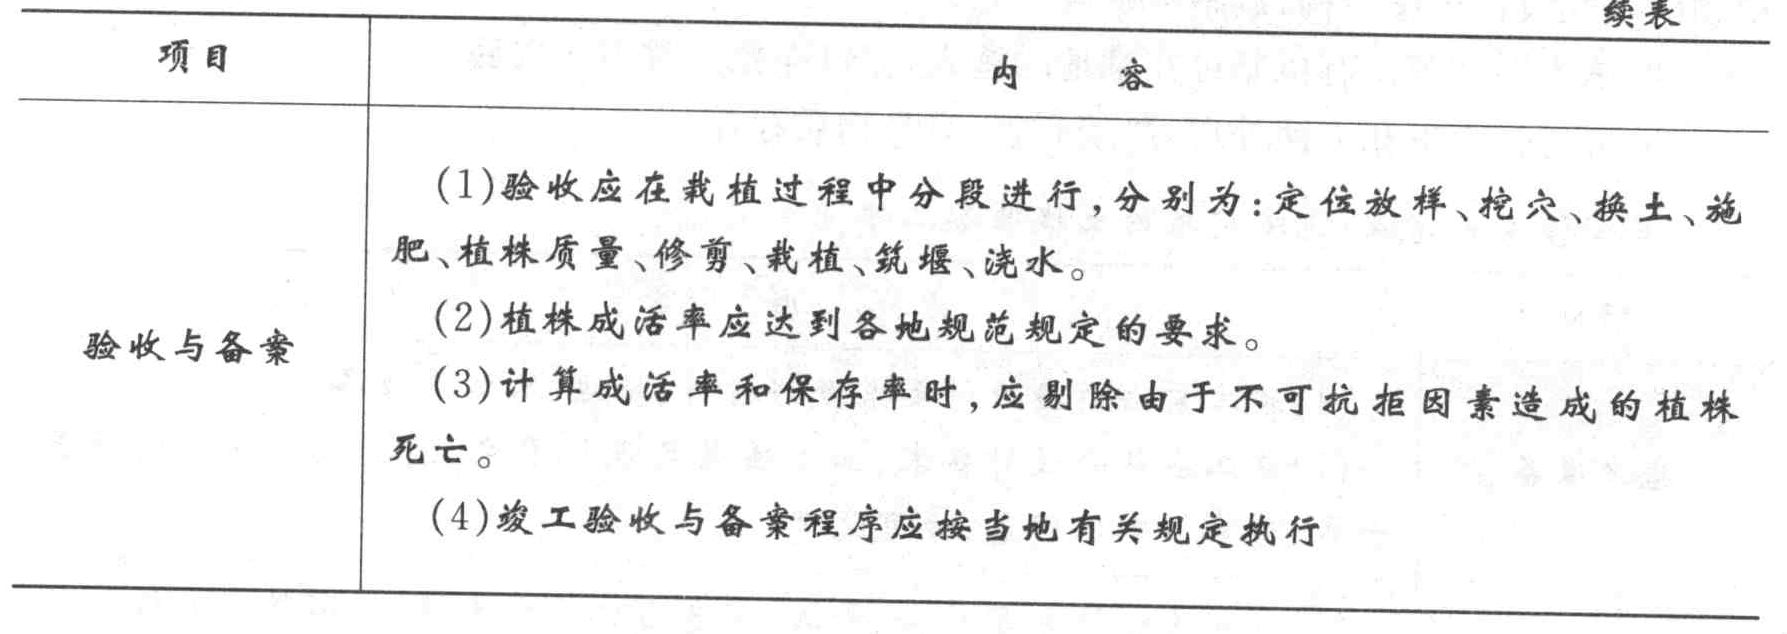 续表
项目
内 容
(1)验收应在栽植过程中分段进行,分别为:定位放样、挖穴、换土、施
肥、植株质量、修剪、栽植、筑堰、浇水。
(2)植株成活率应达到各地规范规定的要求。
验收与备案
(3)计算成活率和保存率时,应剔除由于不可抗拒因素造成的植株
死亡。
(4)竣工验收与备案程序应按当地有关规定执行